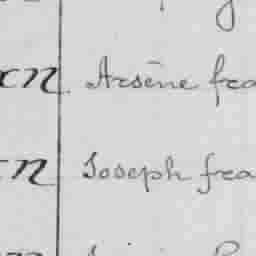 cn Arsène fra
n Joseph fra